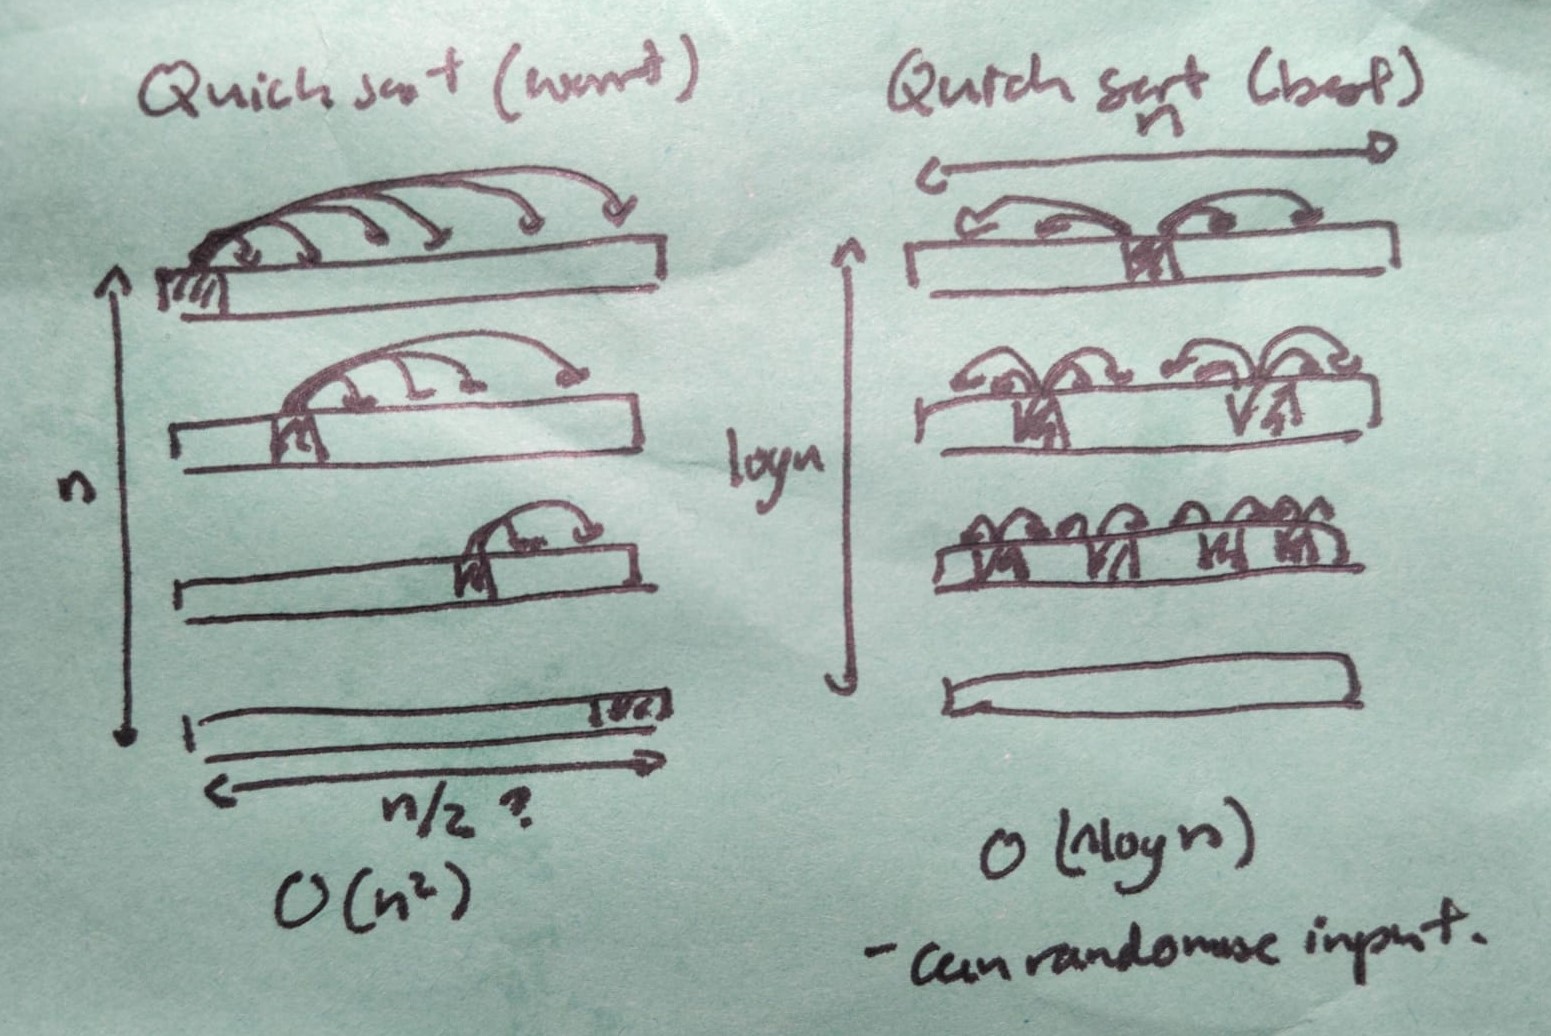 Quick sort (worst)
n
n/2 ?
O(n²)
Quick sort (best)
n
logn
O(nlogn)
- can randomise input.